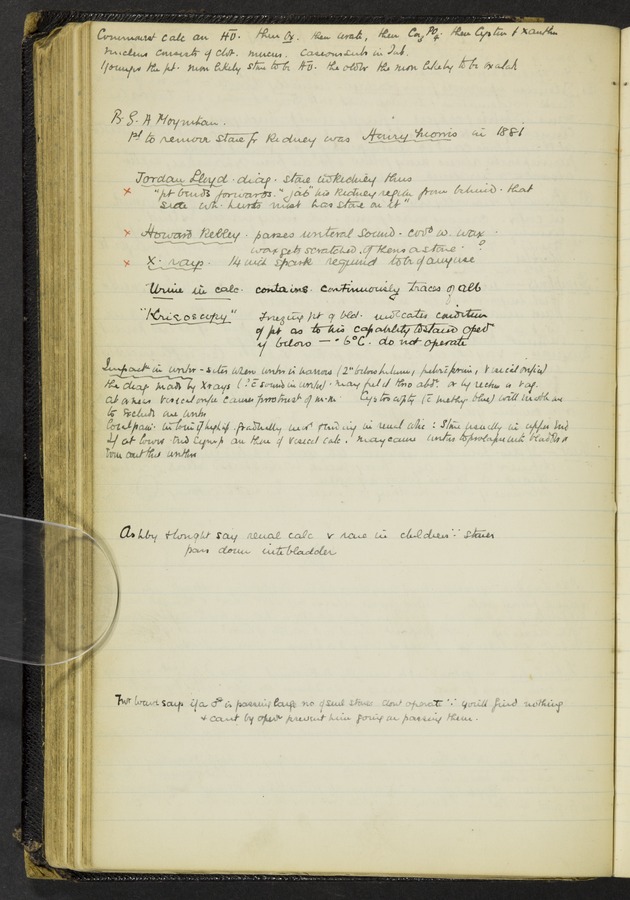 Commonest calc are then Ox. then urate, then then Cystin & xanthin
nucleus consists of clot. mucus. in Tub.
younger the pt. more likely stone to be the older the more likely to be oxalate
B.G.A Moynihan.
1st to remove stone fr kidney was Henry Morris in 1881
Jordan Lloyd. diag. stone in kidney thus
x "pt bends forwards." "jab" his kidney region from behind. that
side wh. hurts most has stone in it"
x Howard Kelley. passes ureteral sound. covd w. wax.
wax gets scratched if there is a stone.
x X. rays. 14 inch spark required to be of any use
Urine in calc. contains. continuously traces of alb
"Krioscopy" freezing pt of bld. indicates condition
of pt as to his capability to stand opern
if below — .6°C. do not operate
Impact in ureter - sites when ureter is narrow (2" below hilum, pelvic brim, & vesical orifice)
the diag made by Xrays (? c sound in ureter). may feel it thro abd. or by rectum or vag.
at vesical orifice causes of m.m. Cystoscopy (c methy blue) will
to exclude one ureter
Local pain. gradually in renal colic: Stone usually in upper end
If at lower end symp are those of vesical calc. may cause ureter to prolapse into bladder &
even out thro urethra
Ashby & Wright say renal calc v rare in children ∵ stones
pass down into bladder
says if a is passing large no of small stones dont operate ∵ you'll find nothing
& cant by opern prevent him going on passing them.